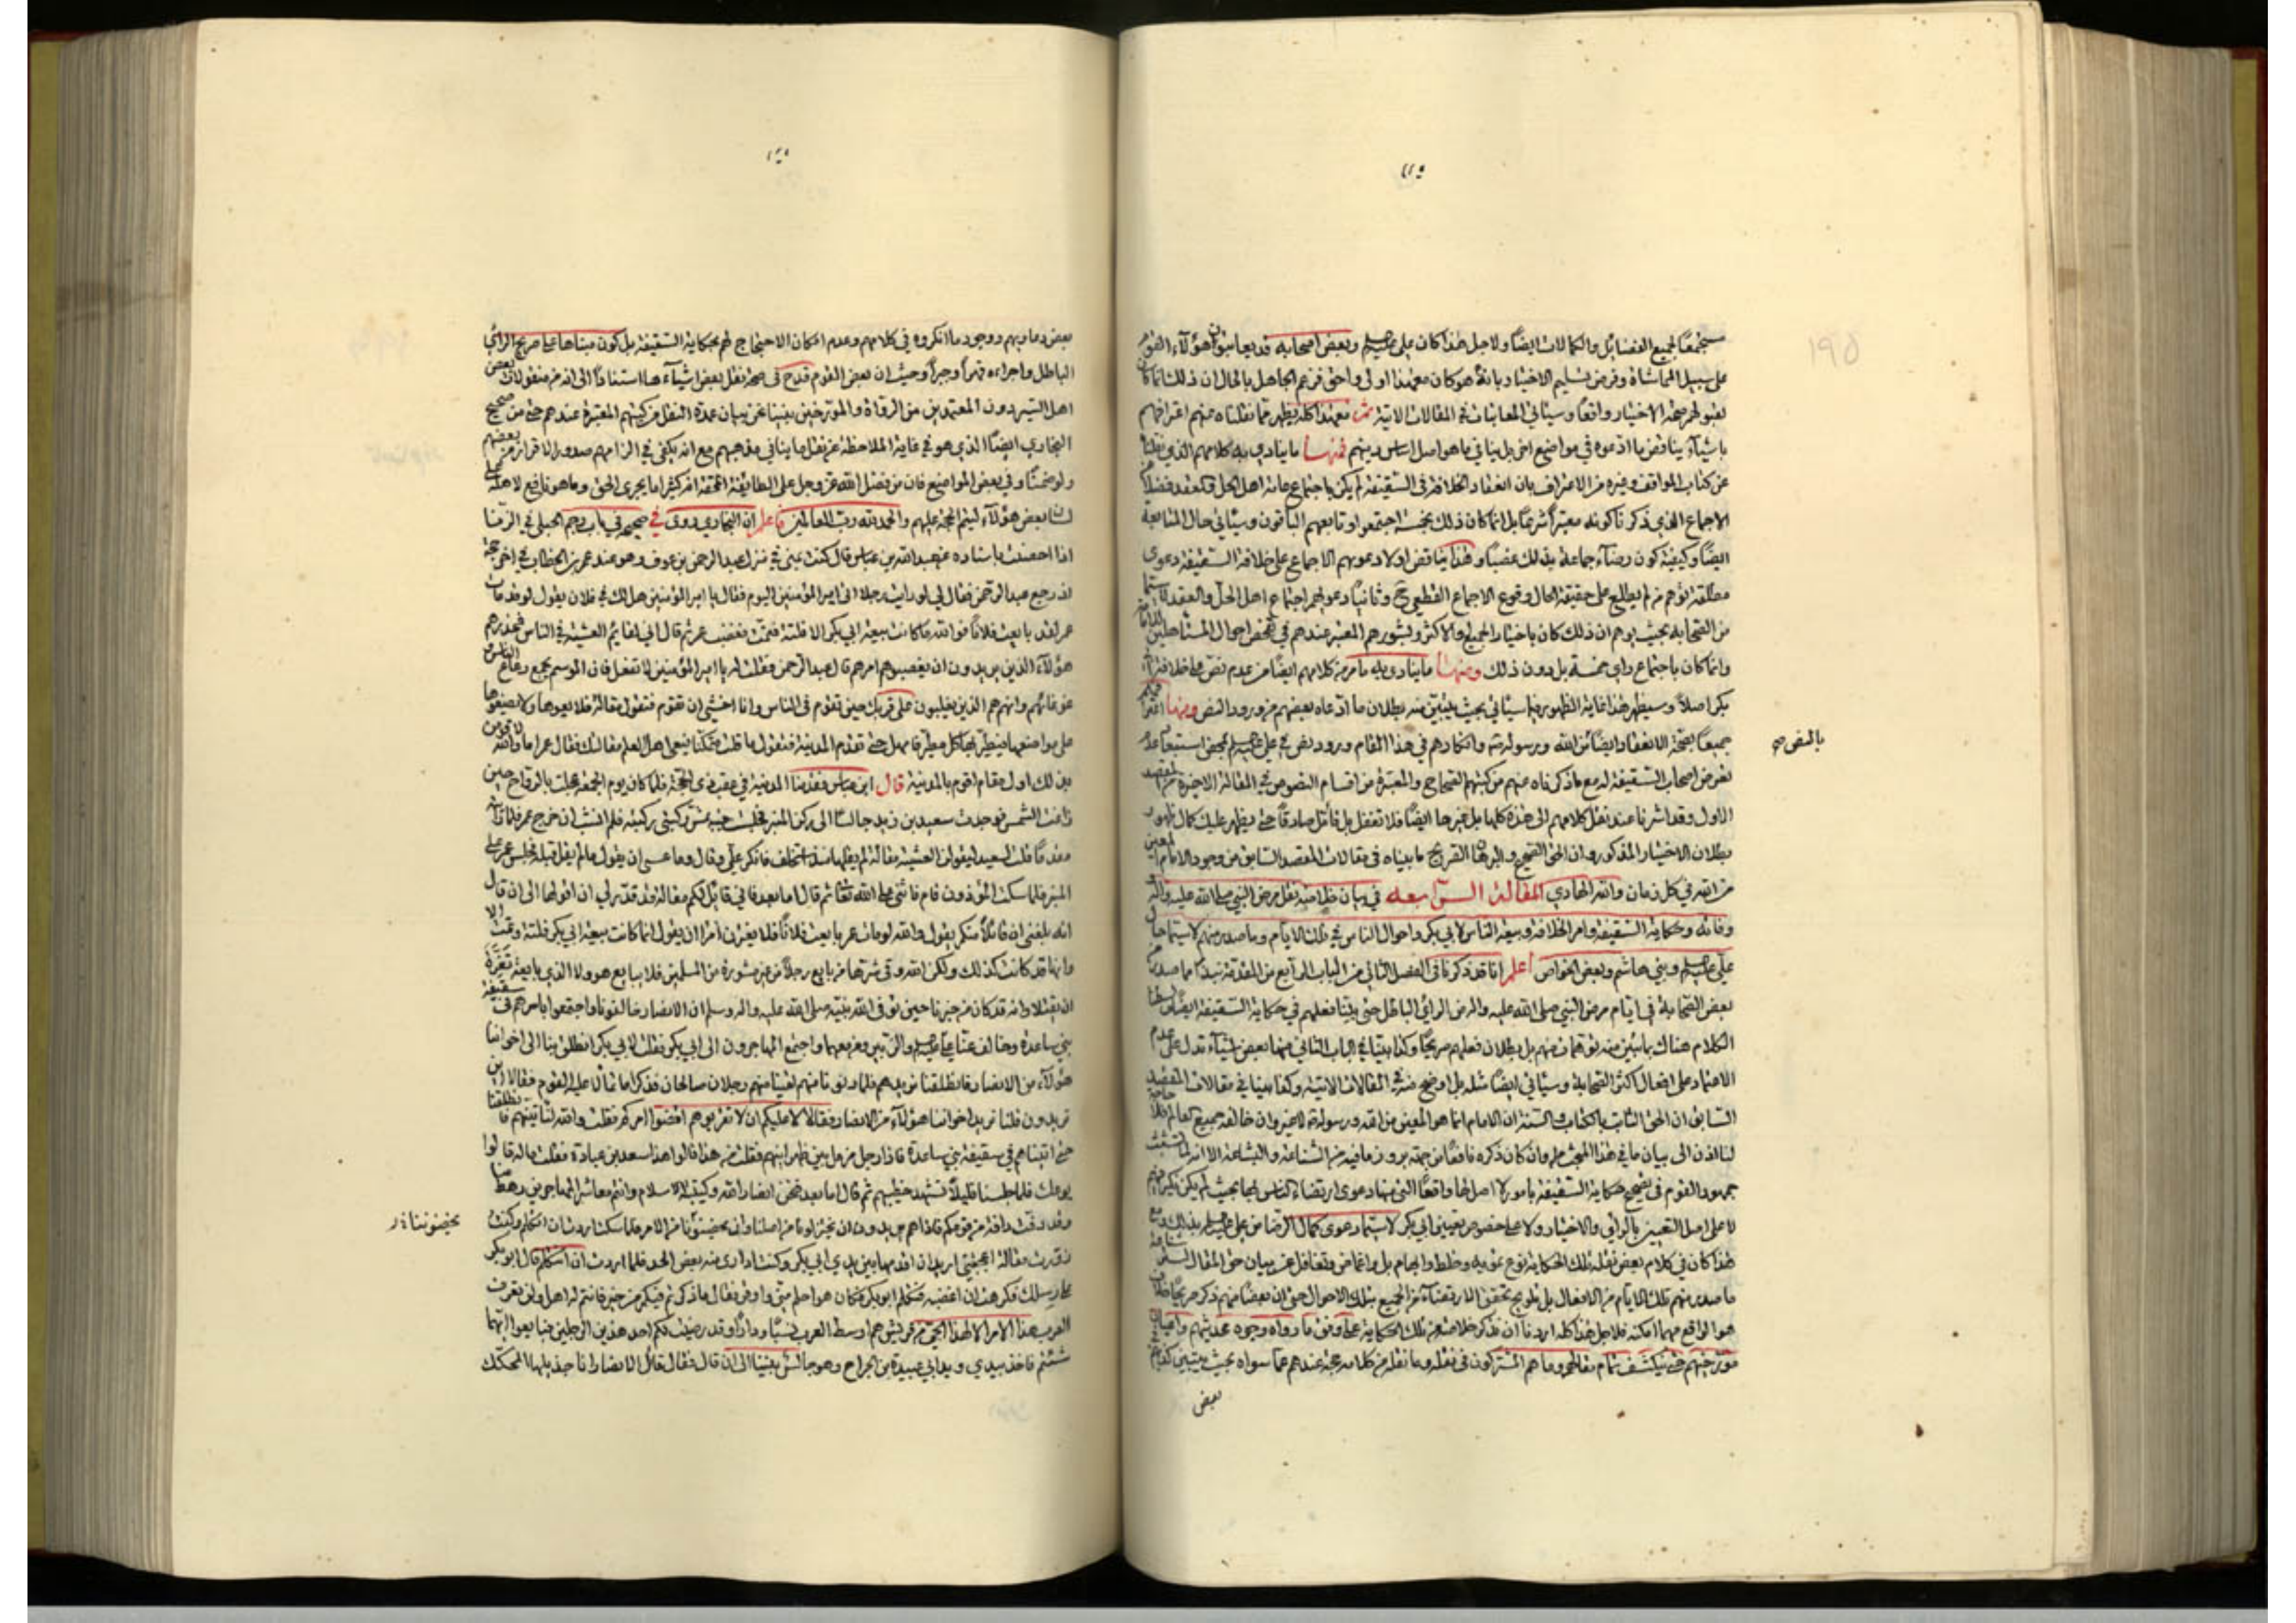 مستجمعًا لجميع الفضائل والكمالات ايضًا ولاجل هذا كان علي وبعض اصحابه قد يعاتبون هؤلاء القوم
على سبيل المماشاة وفرض تسليم الاختيار بانه هو كان معهذا اولى واحق فزعم الجاهل بالحال ان ذلك انما كان
لقبولهم صحة الاختيار واقعًا وسيأتي المعاتبات في المقالات الآتية ثم معهذا كله يظهر مما نقلناه عنهم اعترافهم
باشياء يناقض ما ادعوه في مواضع اخر بل ينافي ما هو اصل اساس دينهم فمنها ما ينادي به كلامهم الذي نقلنا
عن كتاب المواقف وغيره من الاعتراف بان انعقاد الخلافة في السقيفة لم يكن باجتماع عامة اهل الحل والعقد فضلا عن
الاجماع الذي ذكرنا كونه معتبرًا شرعًا بل انما كان ذلك بخمسة اجتمعوا وتابعهم الباقون وسيأتي حال المتابعة
ايضًا وكيفية كون رضاء جماعة بذلك غصبًا وهذا يناقض اولا دعويهم الاجماع على خلافة السقيفة دعوى
مطلقة توهم من لم يطلع على حقيقة الحال وقوع الاجماع القطعي ح وثانيًا دعواهم اجتماع اهل الحل والعقد لا سيما
من الصحابة بحيث يوهم ان ذلك كان باختيار الجميع والاكثر وبشورهم المعتبر عندهم في تفحص احوال المتأهلين للامامة
وانما كان باجتماع راي خمسة بل دون ذلك ومنها ما ينادي به ما مر من كلامهم ايضًا من عدم نص على خلافة ابي
بكر اصلا وسيظهر هذا غاية الظهور فيما سيأتي بحيث يتبين منه بطلان ما ادعاه بعضهم من ورود النص ومنها اقرارهم
جميعًا بصحة الانعقاد ايضًا من الله ورسوله وانكارهم في هذا المقام ورود نص في علي بمحض استبعاد عدم
بالنص صح
تعرض اصحاب السقيفة له مع ما ذكرناه عنهم من كتبهم الصحاح والمعتبرة من اقسام النصوص في المقالة الاخيرة من المقصد
الاول وقد اشرنا عند نقل كلامهم الى هذه كلها بل غيرها ايضًا فلا تغفل بل تأمل صادقًا حتى يظهر عليك كمال ظهور
بطلان الاختيار المذكور وان الحق الصحيح والبرهان الصريح ما بيناه في مقالات المقصد السابق من وجود الامام المعين
من الله في كل زمان والله الهادي المقالة الرابعة في بيان خلاصة نقل مرض النبي صلى الله عليه وآله
وفاته وحكاية السقيفة وامر الخلافة وبيعة الناس لابي بكر واحوال الناس في تلك الايام وما صدر منهم لا سيما حال
علي وبني هاشم وبعض الخواص اعلم انا قد ذكرنا في الفصل الثاني من الباب الرابع من المقدمة نبذا مما صدر من
بعض الصحابة في ايام مرض النبي صلى الله عليه وآله من الرأي الباطل حتى بينا فعلهم في حكاية السقيفة ايضًا وبسطنا
الكلام هناك بما تبين منه توهمات منهم بل بطلان فعلهم صريحًا وكذا بينا في الباب الثاني منها بعض اشياء تدل على عدم
الاعتماد على افعال اكثر الصحابة وسيأتي ايضًا مثله بل اوضح منه في المقالات الآتية وكذا بينا في مقالات المقصد
السابق ان الحق الثابت بالكتاب والسنة ان الامام انما هو المعين من الله ورسوله لا غير وان خالفه جميع العالم فلا حاجة
لنا اذن الى بيان ما في هذا المبحث وان كان ذكره نافعًا من جهة بروز ما فيه من الشناعة والبشاعة الا انه لما تشبث
جمهور القوم في تصحيح حكاية السقيفة بامور لا اصل لها واقعًا التي منها دعوى ارتضاء الناس لها بحيث لم يكن نكير منهم
لا على اصل التعيين بالرأي والاختيار ولا على خصوص تعيين ابي بكر لا سيما دعوى كمال الرضا من علي بذلك مع
هذا كان في كلام بعض نقلة تلك الحكاية نوع تمويه وخلط وابهام بل واغماض وتغافل عن بيان حق المقال
ما صدر منهم تلك الايام من الافعال بل تلويح تحقق الارتضاء من الجميع بتلك الاحوال حتى ان بعضًا منهم ذكر صريحًا خلاف
هو الواقع مهما امكنه فلاجل هذا كله اردنا ان نذكر خلاصة تلك الحكاية على وفق ما رواه وجوه محدثيهم واعيان
مؤرخيهم حتى ينكشف تمام مقالهم وما هم المشتركون في نقله وما نقله من كلامه حجة عندهم عما سواه بحيث يتبين كذب
بعض
بعض دعاويهم ووجود ما انكروه في كلامهم وعدم امكان الاحتجاج لهم بحكاية السقيفة بل كون مبناها على صريح الرأي
الباطل واجراءه قهراً وجبراً وحيث ان بعض القوم قدح في صحة نقل بعض اشياء ها استنادًا الى انه من منقولات بعض
اهل السير دون المعتمدين من الرواة والمؤرخين بنينا نحن بيان عمدة النقل من كتبهم المعتبرة عندهم حتى من صحيح
البخاري ايضًا الذي هو في غاية الملاحظة عن نقل ما ينافي مذهبهم مع انه يكفي في الزامهم صدور الاقرار من بعضهم
ولو ضمنًا وفي بعض المواضع فان من فضل الله عز وجل على الطائفة المحقة انه كثيرا ما يجري الحق وما هو نافع لاهله على
لسان بعض هؤلاء ليتم الحجة عليهم والحمد لله رب العالمين فاعلم ان البخاري روى في صحيحه في باب رجم الحبلى في الزنا
اذا احصنت باسناده عن عبد الله بن عباس قال كنت بمنى في منزل عبد الرحمن بن عوف وهو عند عمر بن الخطاب في اخر حجة
اذ رجع عبد الرحمن فقال لي لو رايت رجلا اتى امير المؤمنين اليوم فقال يا امير المؤمنين هل لك في فلان يقول لو قد مات
عمر لقد بايعت فلانًا فوالله ما كانت بيعة ابي بكر الا فلتة فتمت فغضب عمر ثم قال اني لقائم العشية في الناس فمحذرهم
هؤلاء الذين يريدون ان يغصبوهم امرهم قال عبد الرحمن فقلت له يا امير المؤمنين لا تفعل فان الموسم يجمع رعاع الناس
غوغائهم وانهم هم الذين يغلبون على قربك حين تقوم في الناس وانا اخشى ان تقوم فتقول مقالة فلا يعوها ولا يضعوها
على مواضعها فيطير بها كل مطير فامهل حتى تقدم المدينة فتقول ما قلت متمكنا فيعي اهل العلم مقالتك فقال عمر اما والله لاقومن
بذلك اول مقام اقوم بالمدينة قال ابن عباس فقدمنا المدينة في عقب ذي الحجة فلما كان يوم الجمعة عجلت بالرواح حين
زاغت الشمس فوجدت سعيد بن زيد جالسًا الى ركن المنبر فجلست حتى تمس ركبتي ركبته فلم انشب ان خرج عمر فلما رأيته
مقدمًا قلت لسعيد ليقولن العشية مقالة لم يقلها منذ استخلف فانكر علي وقال وما عسى ان يقول ما لم يقل قبله فجلس عمر على
المنبر فلما سكت المؤذنون قام فاثنى على الله تعالى ثم قال اما بعد فاني قائل لكم مقالة قد قدر لي ان اقولها الى ان قال
انه بلغني ان قائلاً منكم يقول والله لو مات عمر بايعت فلانًا فلا يغترن امرأ ان يقول انما كانت بيعة ابي بكر فلتة وتمت الا
وانها قد كانت كذلك ولكن الله وقى شرها من بايع رجلاً من غير مشورة من المسلمين فلا يبايع هو ولا الذي بايعه تغرة
ان يقتلا وانه قد كان من خبرنا حين توفى الله نبيه صلى الله عليه واله وسلم ان الانصار خالفونا واجتمعوا باسرهم في سقيفة
بني ساعدة وخالف عنا علي والزبير ومن معهما واجتمع المهاجرون الى ابي بكر فقلت لابي بكر انطلق بنا الى اخواننا
هؤلاء من الانصار فانطلقنا نريدهم فلما دنونا منهم لقينا منهم رجلان صالحان فذكرا ما تمالا عليه القوم فقالا اين
تريدون قلنا نريد اخواننا هؤلاء من الانصار فقالا لا عليكم ان لا تقربوهم اقضوا امركم فقلت والله لنأتينهم فانطلقنا
حتى اتيناهم في سقيفة بني ساعدة فاذا رجل مزمل بين ظهرانيهم فقلت من هذا قالوا هذا سعد بن عبادة فقلت ما له قالوا
يوعك فلما جلسنا قليلاً تشهد خطيبهم ثم قال اما بعد فنحن انصار الله وكتيبة الاسلام وانتم معاشر المهاجرين رهط منا
وقد دفت دافة من قومكم فاذا هم يريدون ان يختزلونا من اصلنا وان يحضنونا من الامر فلما سكت اردت ان اتكلم وكنت
يحضنوننا
زورت مقالة اعجبتني اريد ان اقدمها بين يدي ابي بكر وكنت اداري منه بعض الحد فلما اردت ان اتكلم قال ابو بكر
على رسلك فكرهت ان اغضبه فتكلم ابو بكر فكان هو احلم مني واوقر فقال ما ذكرتم فيكم من خير فانتم له اهل ولن يعرف
العرب هذا الامر الا لهذا الحي من قريش هم اوسط العرب نسبًا ودارًا وقد رضيت لكم احد هذين الرجلين فبايعوا ايهما
شئتم فاخذ بيدي وبيد ابي عبيدة بن الجراح وهو جالس بيننا الى ان قال فقال قائل الانصار انا جذيلها المحكك